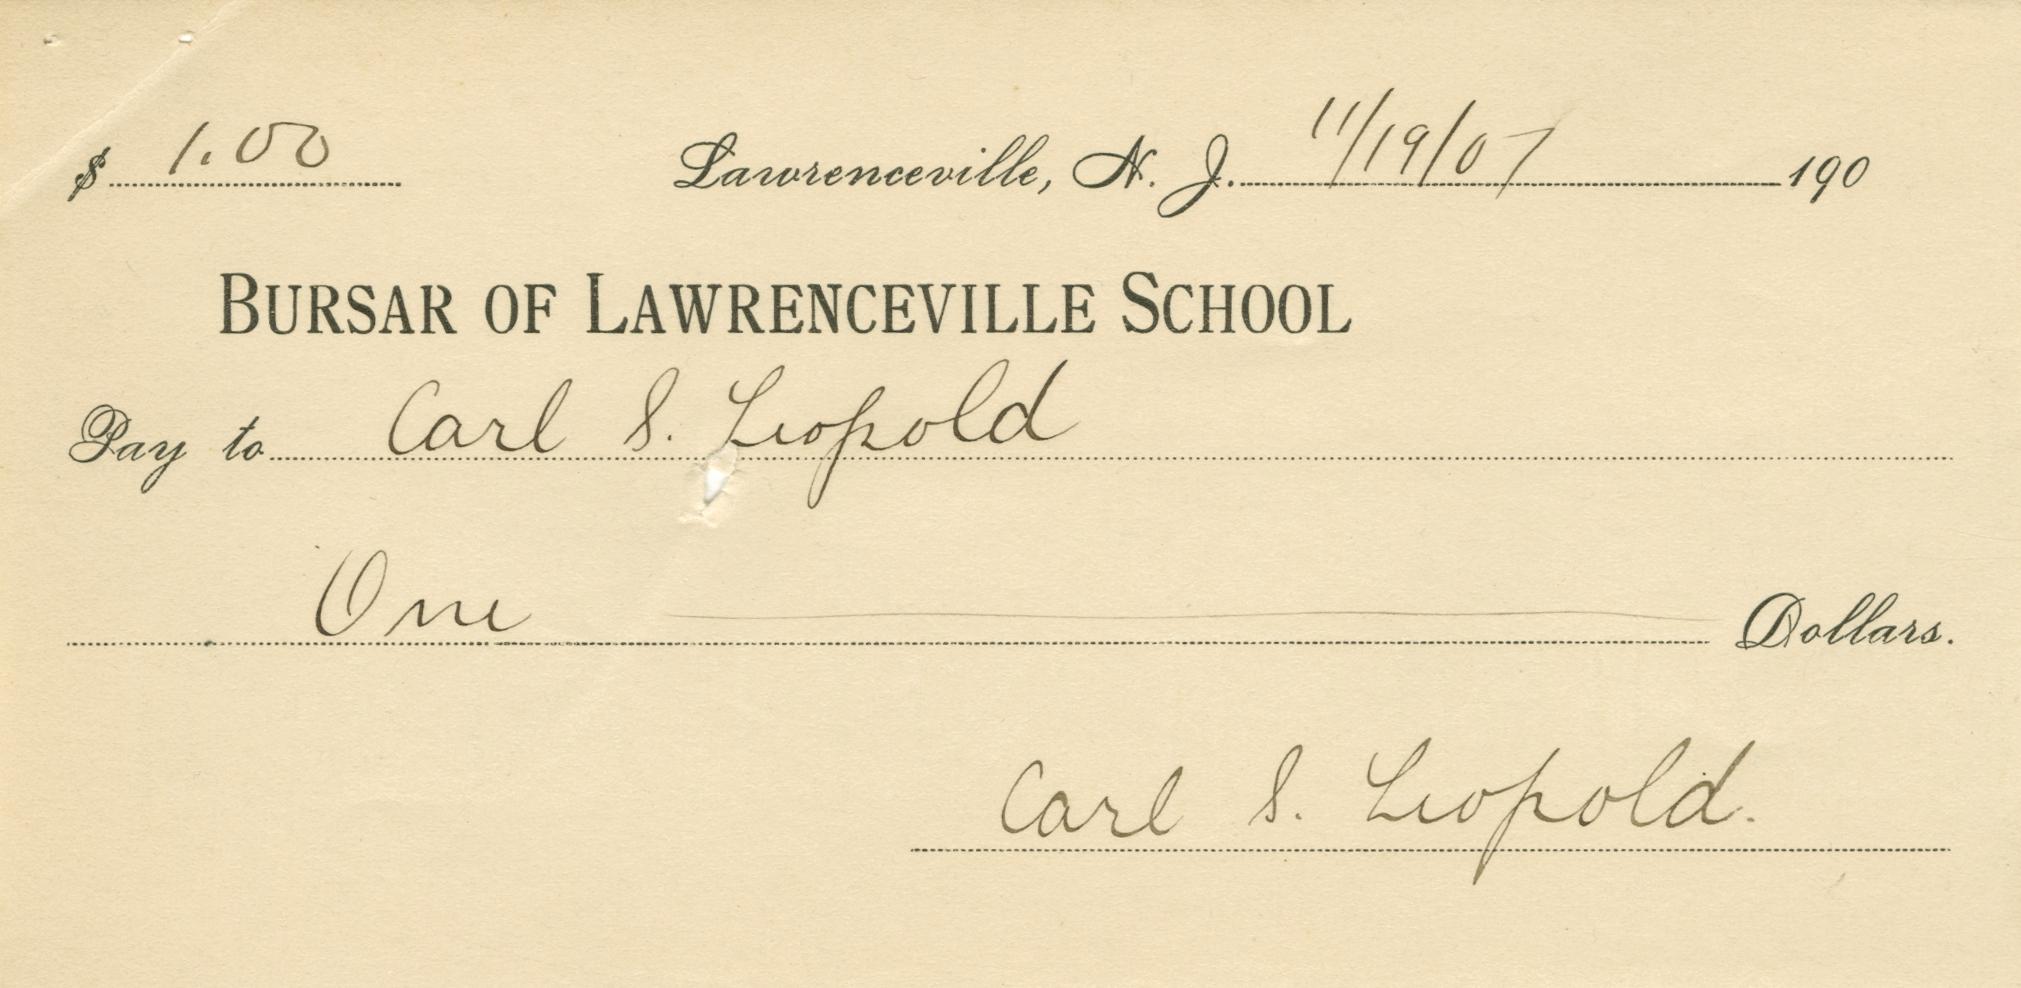 $ 1.00 Lawrenceville, N. J. 11/19/07 190
BURSAR OF LAWRENCEVILLE SCHOOL
Pay to Carl S. Leopold
One Dollars.
Carl S. Leopold.